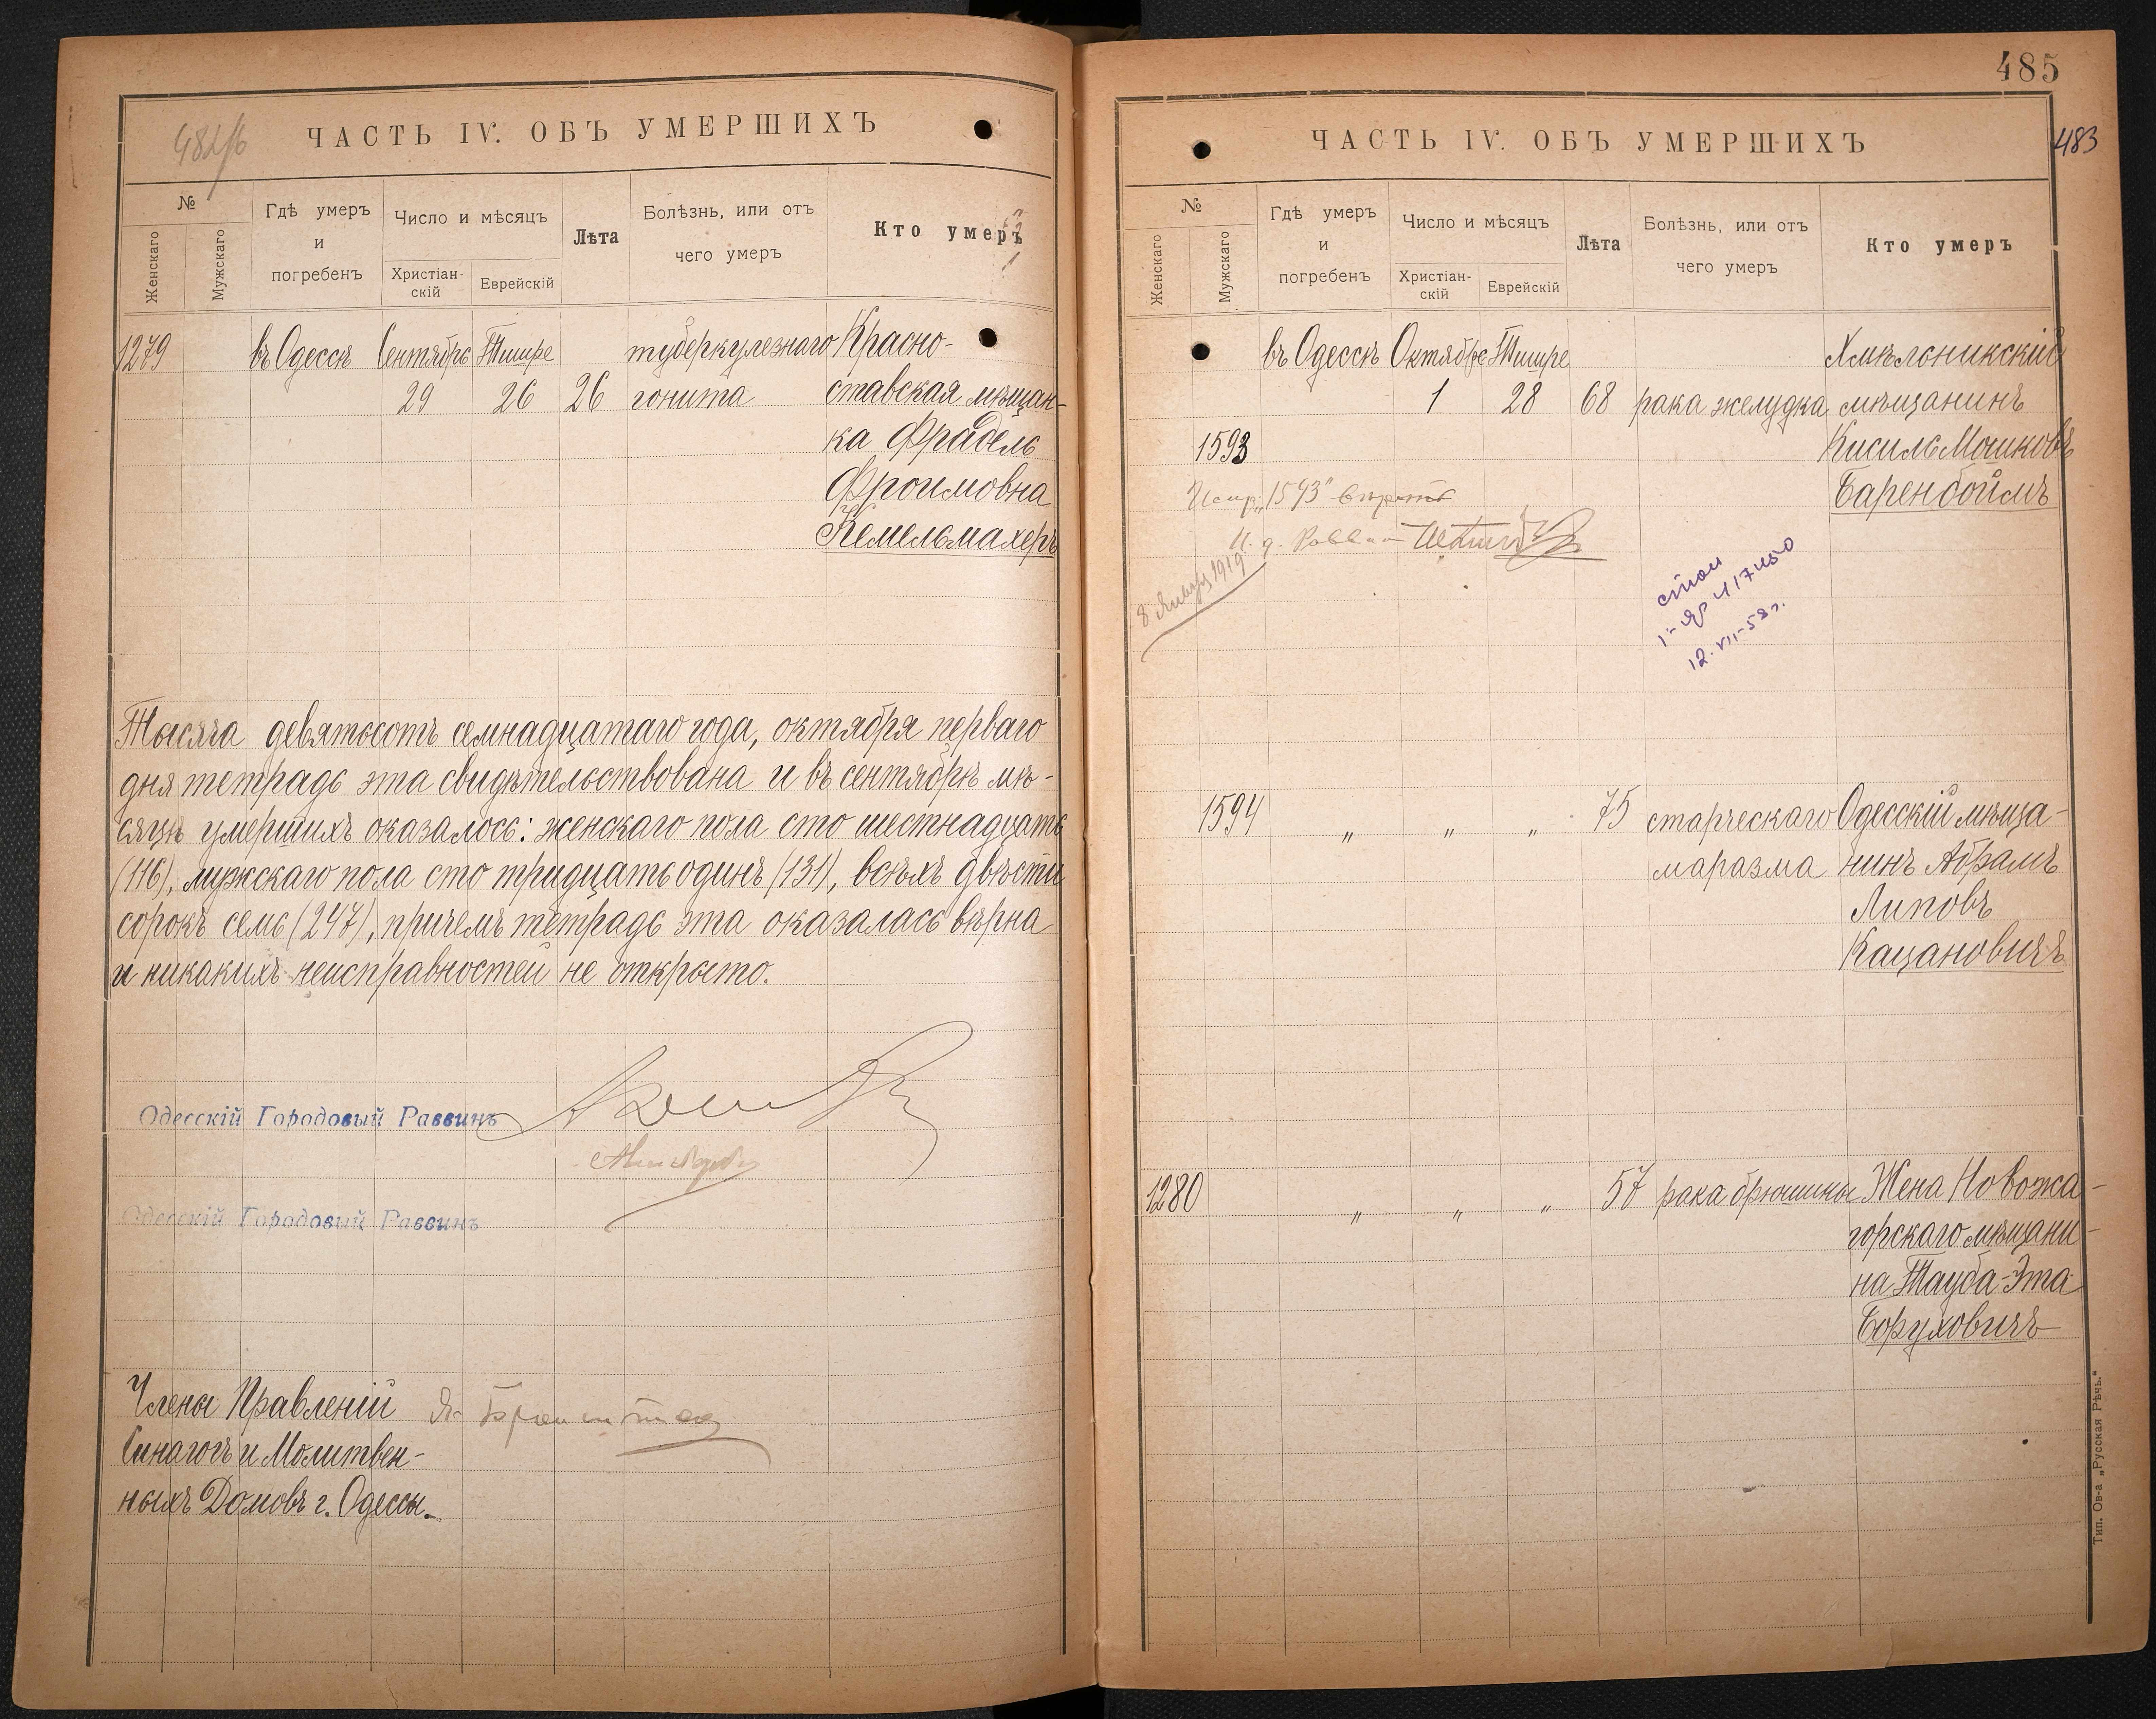 ЧАСТЬ IV. ОБЪ УМЕРШИХЪ
№
Женскаго
Мужскаго
Гдѣ умеръ
и
погребенъ
Число и мѣсяцъ
Христіан-
скій
Еврейскій
Лѣта
Болѣзнь, или отъ
чего умеръ
Кто умеръ
1279 въ Одессѣ Сентябрь Тишре туберкулезнаго Красно-
29 26 26 гонита ставская мѣщан-
ка Фрадель
Фроимовна
Кемельмахеръ
Тысяча девятьсотъ семнадцатаго года, октября перваго
дня тетрадь эта свидѣтельствована и въ сентябрѣ мѣ-
сяцѣ умершихъ оказалось: женскаго пола сто шестнадцать
(116), мужскаго пола сто тридцать одинъ (131), всѣхъ двѣсти
сорокъ семь (247), причемъ тетрадь эта оказалась вѣрна
и никакихъ неисправностей не открыто.
Одесскій Городовый Раввинъ
Одесскій Городовый Раввинъ
Члены Правленій
Синагогъ и Молитвен-
ныхъ Домовъ г. Одессы.
485
483
ЧАСТЬ IV. ОБЪ УМЕРШИХЪ
№
Женскаго
Мужскаго
Гдѣ умеръ
и
погребенъ
Число и мѣсяцъ
Христіан-
скій
Еврейскій
Лѣта
Болѣзнь, или отъ
чего умеръ
Кто умеръ
въ Одессѣ Октябрь Тишре Хмѣльникскій
1 28 68 рака желудка мѣщанинъ
1593 Кисиль Мошковъ
Испр. „1593" вѣрить Баренбоймъ
И. д. Раввин
8 Января 1919
12. VII-58 г.
1594 „ „ „ 75 старческаго Одесскій мѣща-
маразма нинъ Абрамъ
Липовъ
Кацановичъ
1280 „ „ „ 57 рака брюшины Жена Новожа-
горскаго мѣщани-
на Тауба-Эта
Боруховичъ
Тип. Ов-а „Русская Рѣчь."